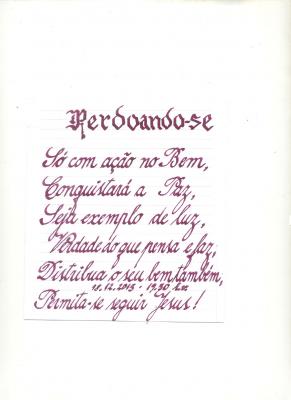 Perdoando-se
Só com ação no Bem,
Conquistará a Paz,
Seja exemplo de luz,
Verdade é o que pensa e faz,
Distribua o seu bem também,
18.12.2015 - 19,30 hs.
Permita-se seguir Jesus!